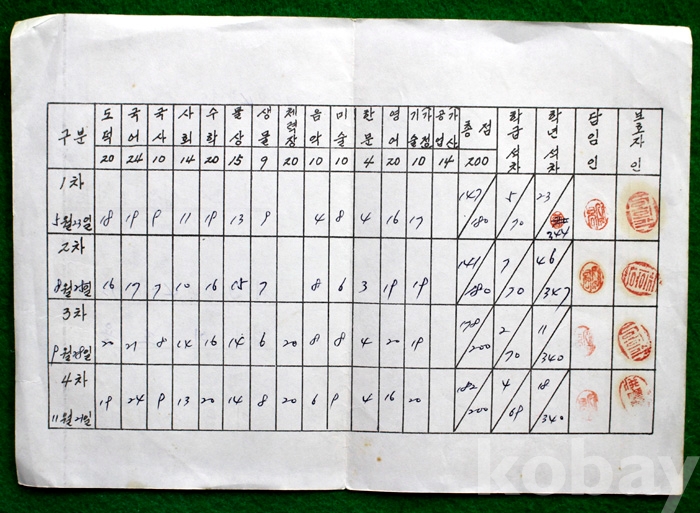 구분 도덕 국어 국사 사회 수학 물상 생물 체력장 음악 미술 한문 영어 기술 가정 공업 가사 총점 학급석차 학년석차 담임인 보호자인
20 24 10 14 20 15 9 20 10 10 4 20 10 14 200
1차
5월23일 18 19 9 11 19 13 9 4 8 4 16 17 147/180 5/70 23/344
2차
8월 일 16 17 7 10 16 15 7 8 6 3 19 19 141/180 7/70 46/347
3차
9월28일 20 21 8 14 16 14 6 20 8 8 4 20 19 178/200 2/70 11/340
4차
11월21일 19 24 9 13 20 14 8 20 6 9 4 16 20 182/200 4/69 18/340
kobay